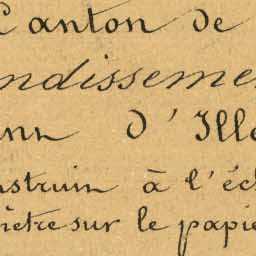 Canton de
ndissemen
ann D'Ille
nstruin à l'éch
ètre sur le papie